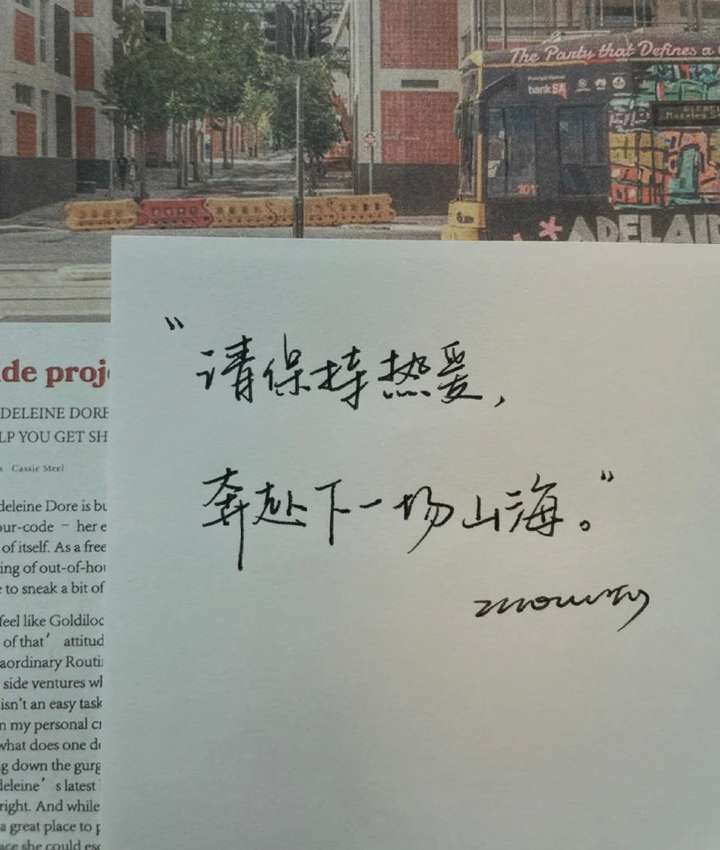 The Party that Defines a
bankSA
101
ADELAID
de proj
DELEINE DORE
LP YOU GET SH
Cassie Steel
deleine Dore is bu
our-code – her e
of itself. As a free
ing of out-of-hou
e to sneak a bit of
feel like Goldiloc
of that' attitud
aordinary Routi
side ventures wl
isn't an easy task
n my personal cr
what does one do
g down the gurg
deleine's latest
right. And while
a great place to p
ace she could esc
“请保持热爱，
奔赴下一场山海。”